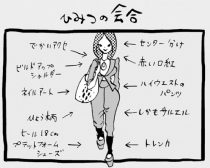 ひみつの会合
でかいアクセ
ビルドアップ
ショルダー
ネイルアート
ひょう柄
ヒール18cm
プラットフォーム
シューズ
センター分け
赤い口紅
ハイウエストの
パンツ
しかもサルエル
トレンカ